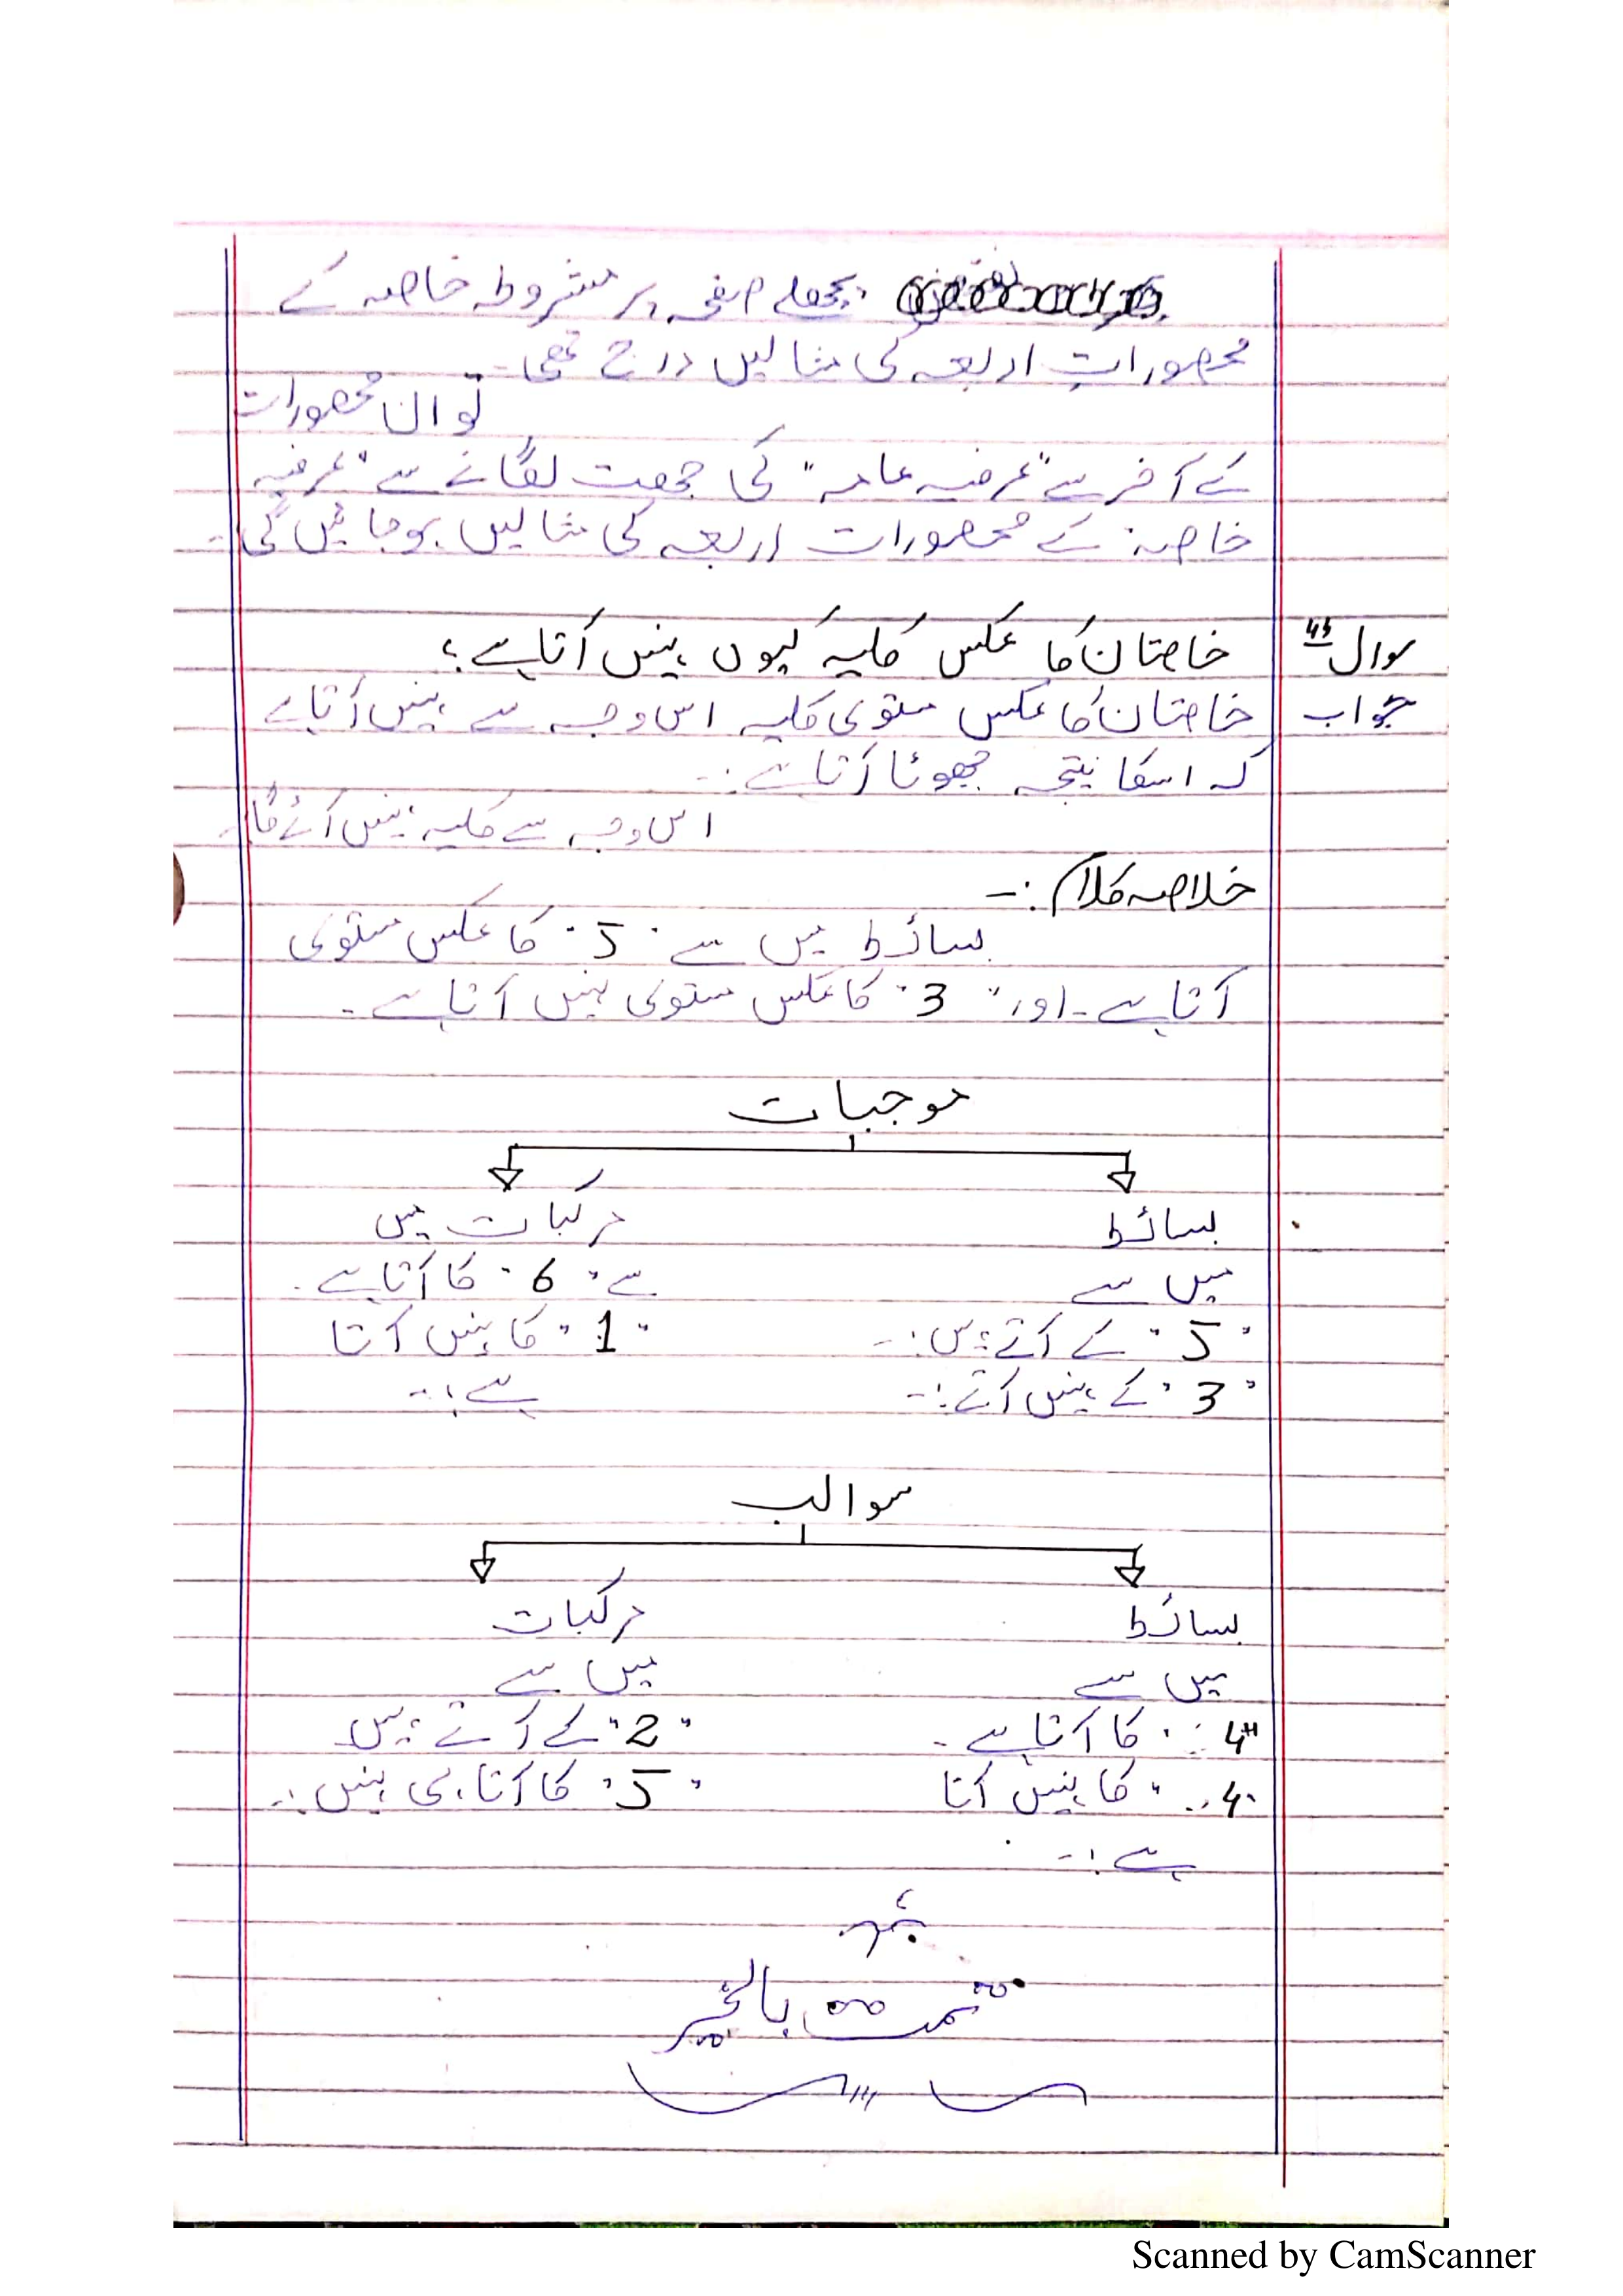 پچھلے صفحہ پر مشروطہ خاصہ کے
محصوراتِ اربعہ کی مثالیں درج تھی۔
تو ان محصورات
کے آخر سے "عرفیہ عامہ" کی جھت لگانے سے "عرفیہ
خاصہ" کے محصورات اربعہ کی مثالیں ہوجائیں گی۔
سوال خاصتان کا عکس کلیہ کیوں نہیں آتا ہے؟
جواب خاصتان کا عکس مستوی کلیہ اس وجہ سے نہیں آتا ہے
کہ اسکا نتیجہ جھوٹا آتا ہے:۔
اس وجہ سے کلیہ نہیں آئے گا۔
خلاصہ کلام :۔
بسائط میں سے "5" کا عکس مستوی
آتا ہے۔ اور "3" کا عکس مستوی نہیں آتا ہے۔
موجبات
بسائط
میں سے
"5" کے آتے ہیں:۔
"3" کے نہیں آتے:۔
مرکبات میں
سے "6" کا آتا ہے۔
"1" کا نہیں آتا
ہے:۔
سوالب
بسائط
میں سے
"4" کا آتا ہے۔
"4" کا نہیں آتا
ہے:۔
مرکبات
میں سے
"2" کے آتے ہیں
"5" کا آتا ہی نہیں:۔
تمت بالخیر
Scanned by CamScanner